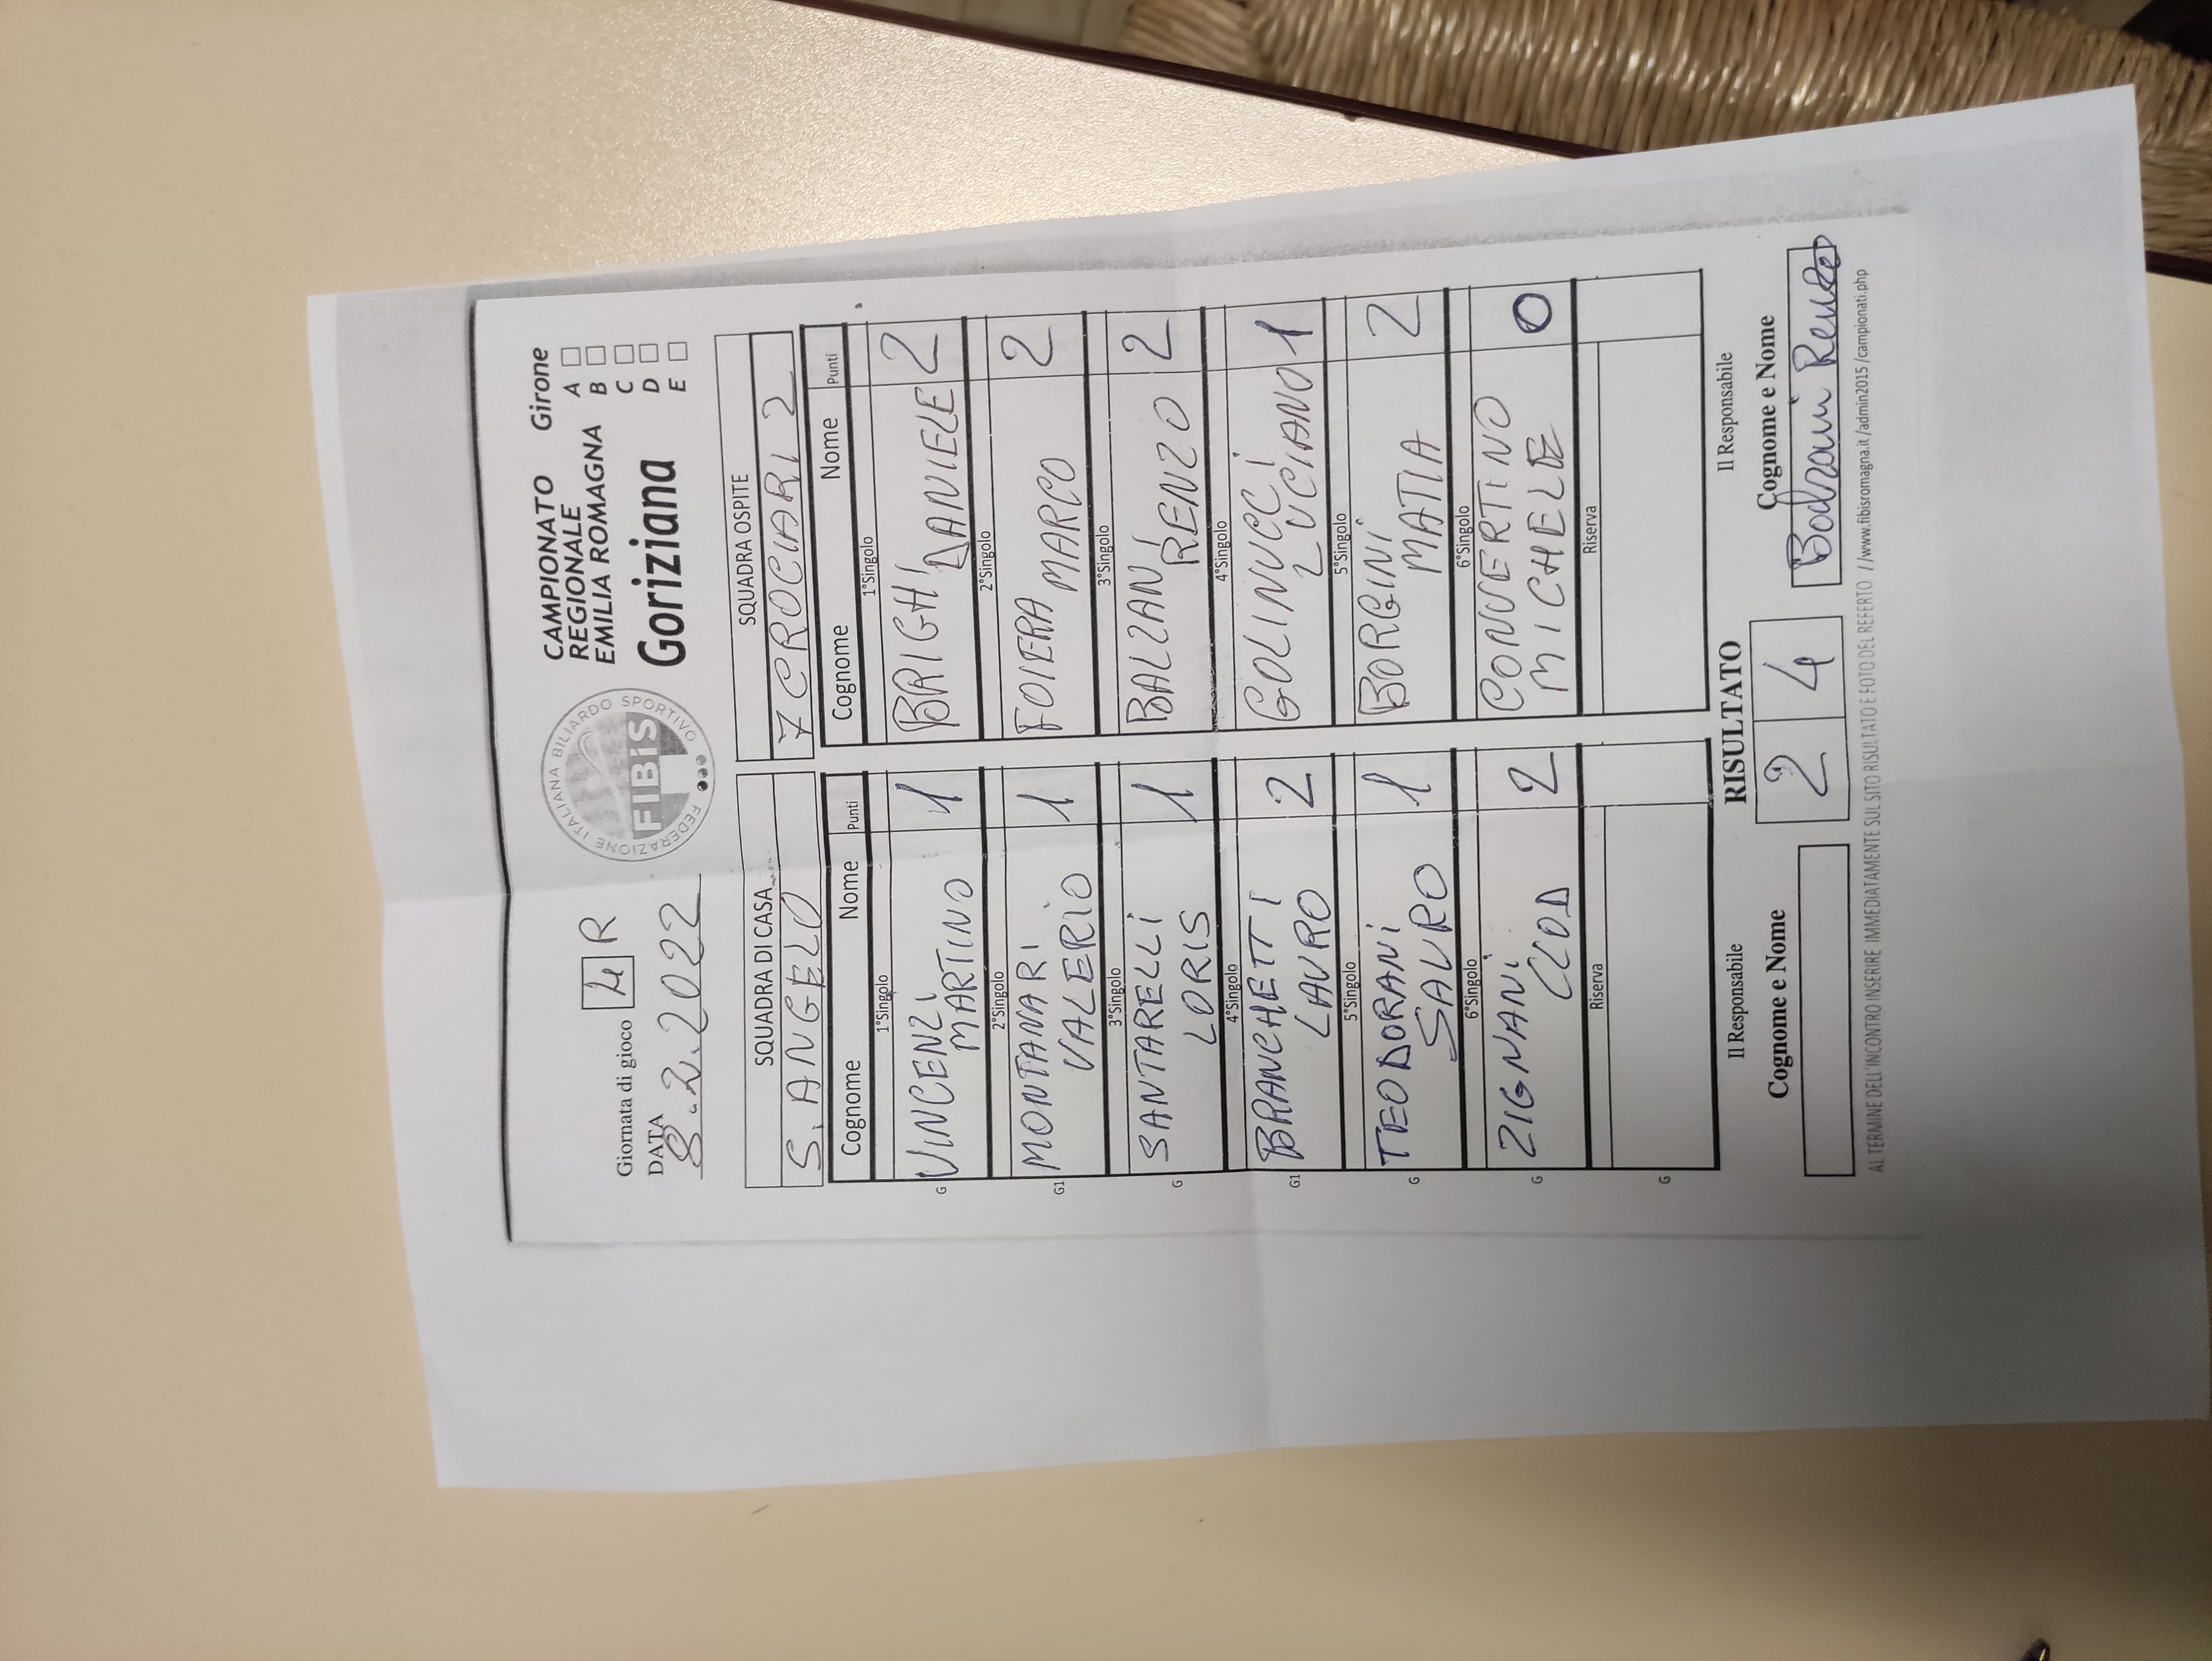 Giornata di gioco 4 R
DATA 8.2.2022
FEDERAZIONE ITALIANA BILIARDO SPORTIVO
FIBIS
CAMPIONATO Girone
REGIONALE A
EMILIA ROMAGNA B
C
Goriziana D
E
SQUADRA DI CASA SQUADRA OSPITE
S. ANGELO 7 CROCIARI 2
Cognome Nome Punti Cognome Nome Punti
1°Singolo 1°Singolo
G VINCENZI MARTINO 1 BRIGHI DANIELE 2
2°Singolo 2°Singolo
G1 MONTANARI VALERIO 1 FOIERA MARCO 2
3°Singolo 3°Singolo
G SANTARELLI LORIS 1 BALZANI RENZO 2
4°Singolo 4°Singolo
G1 BRANCHETTI LAURO 2 GOLINUCCI LUCIANO 1
5°Singolo 5°Singolo
G TEODORANI SAURO 1 BORGINI MATIA 2
6°Singolo 6°Singolo
G ZIGNANI CLOD 2 CONVERTINO MICHELE 0
Riserva Riserva
G
Il Responsabile RISULTATO Il Responsabile
Cognome e Nome 2 4 Cognome e Nome
Balzani Renzo
AL TERMINE DELL'INCONTRO INSERIRE IMMEDIATAMENTE SUL SITO RISULTATO E FOTO DEL REFERTO //www.fibisromagna.it/admin2015/campionati.php